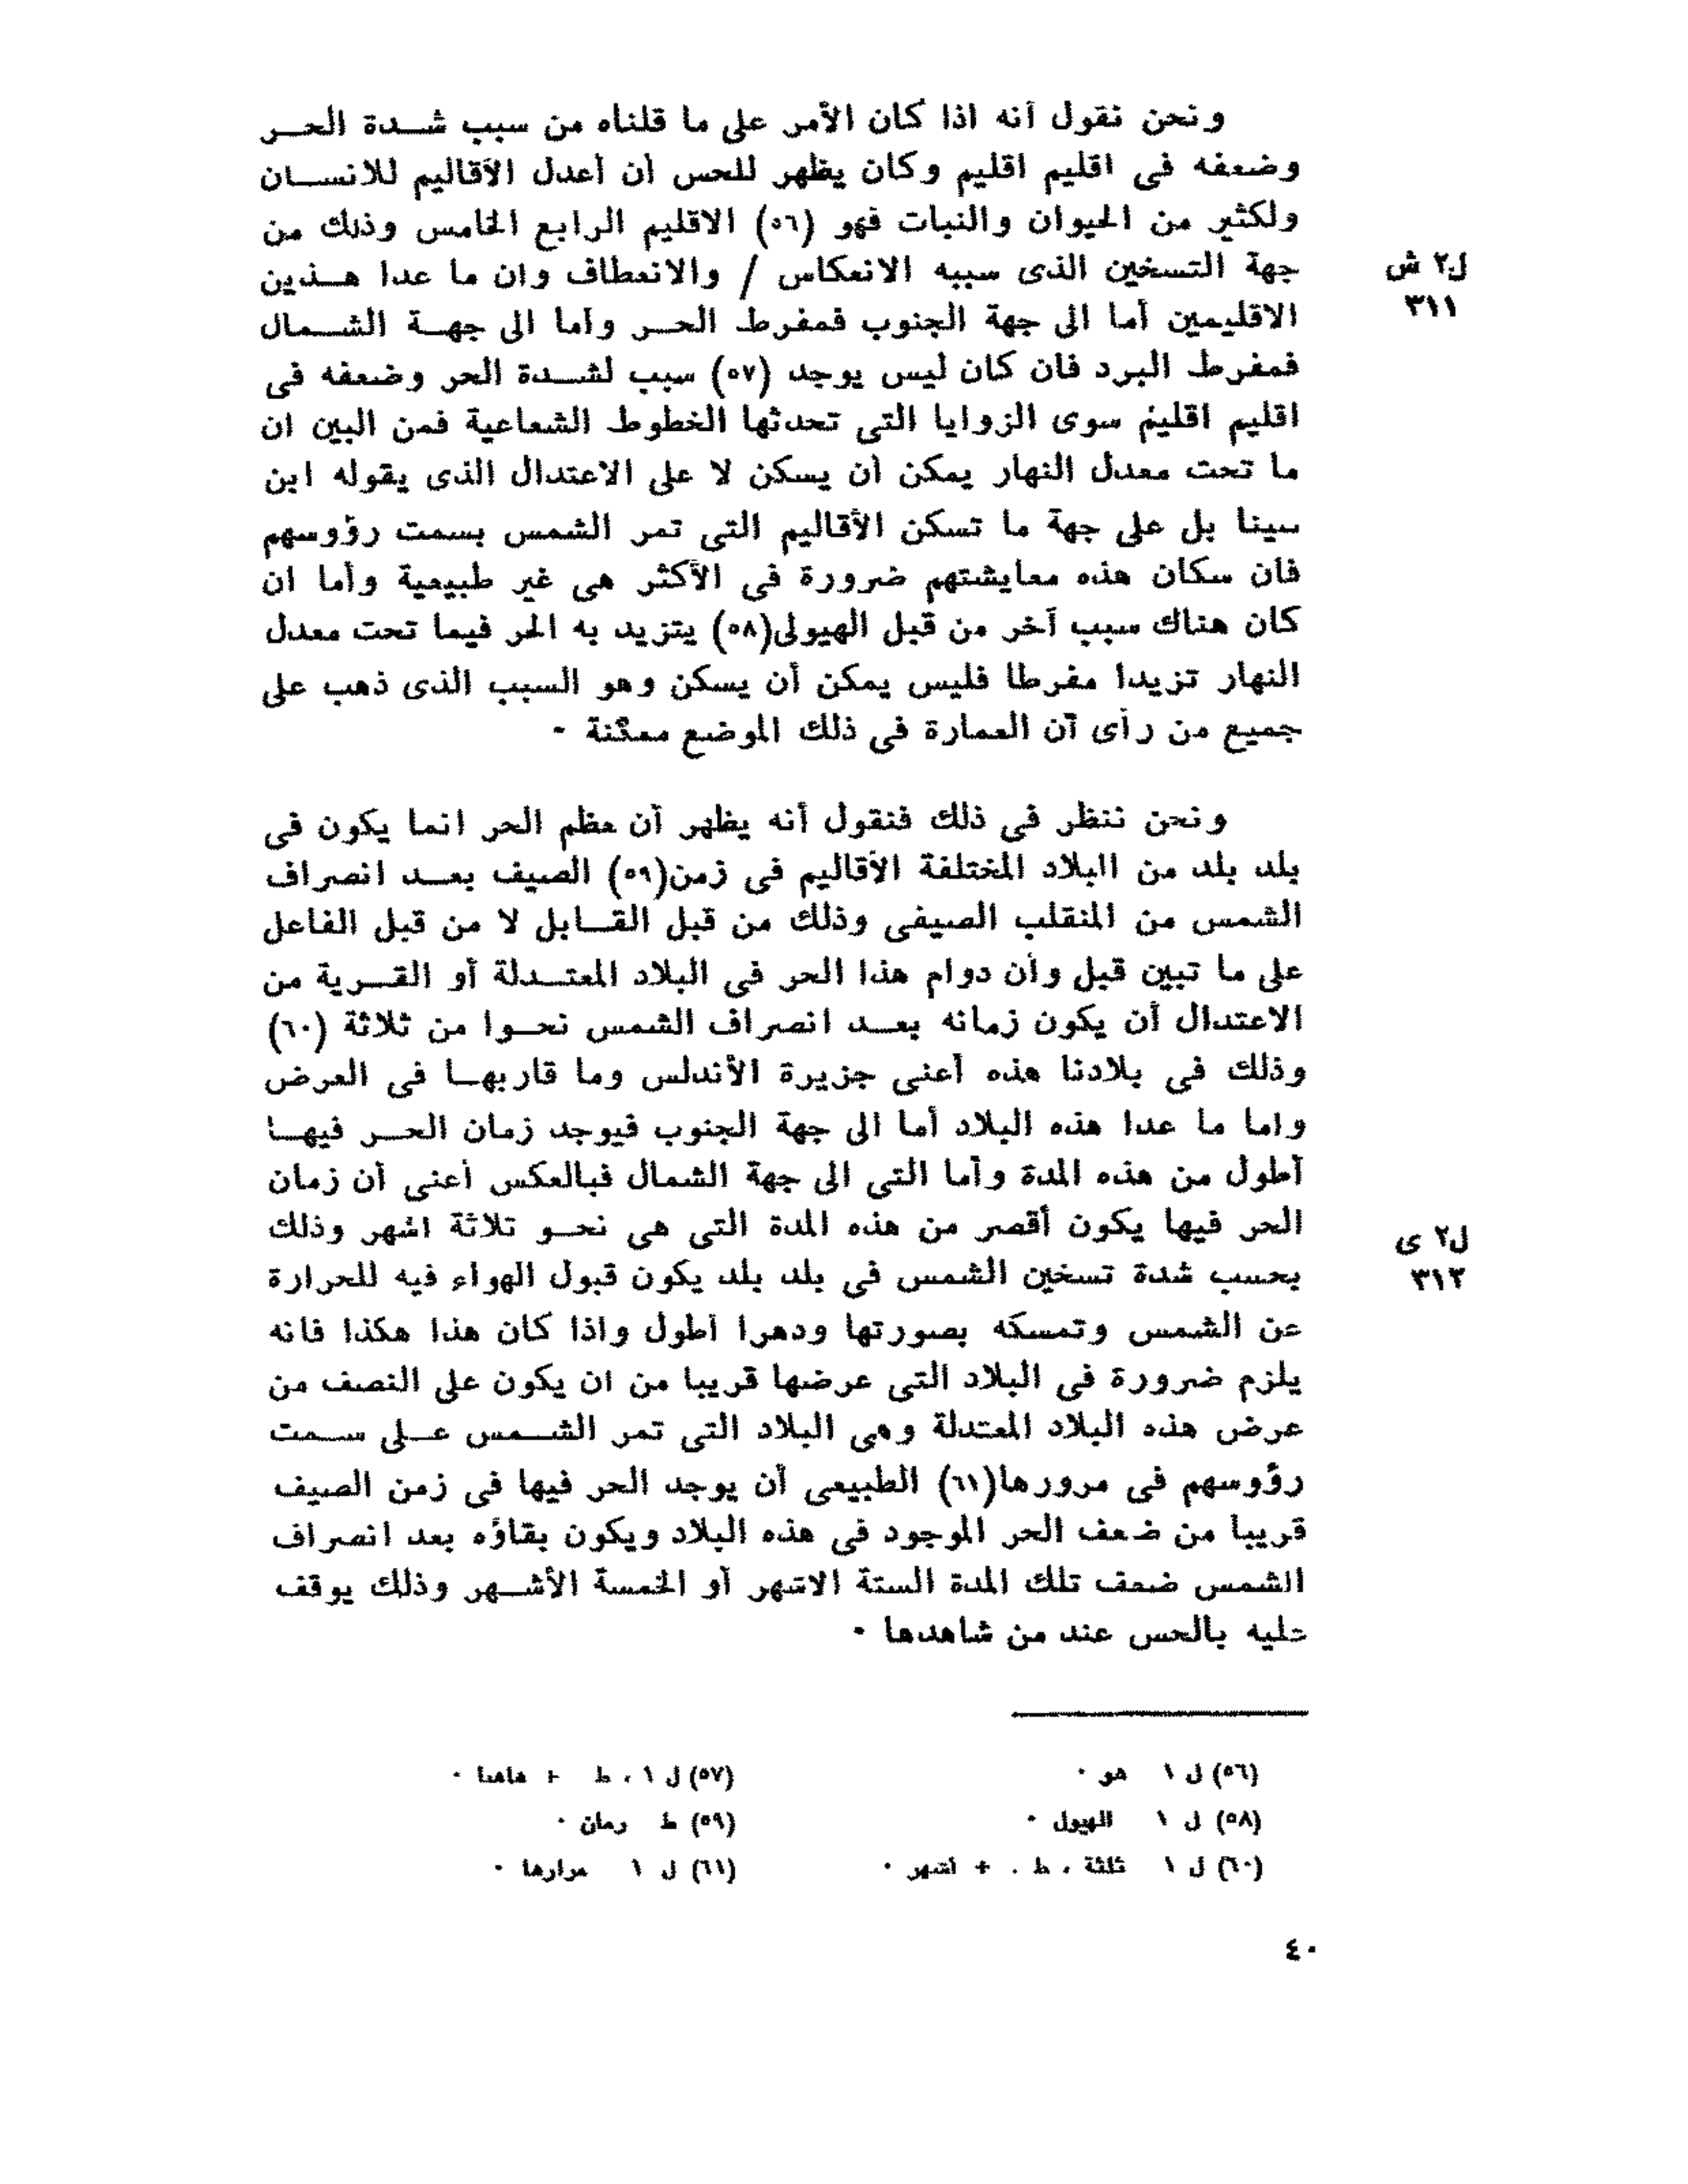 ونحن نقول أنه اذا كان الأمر على ما قلناه من سبب شـدة الحـر
وضعفه فى اقليم اقليم وكان يظهر للحس أن أعدل الأقاليم للانسـان
ولكثير من الحيوان والنبات فهو (٥٦) الاقليم الرابع الخامس وذلك من
جهة التسخين الذى سببه الانعكاس / والانعطاف وان ما عدا هـذين
ل٢ ش
٣١١
الاقليمين أما الى جهة الجنوب فمفرط الحـر وأما الى جهـة الشـمال
فمفرط البرد فان كان ليس يوجد (٥٧) سبب لشـدة الحر وضعفه فى
اقليم اقليم سوى الزوايا التى تحدثها الخطوط الشعاعية فمن البين ان
ما تحت معدل النهار يمكن أن يسكن لا على الاعتدال الذى يقوله ابن
سينا بل على جهة ما تسكن الأقاليم التى تمر الشمس بسمت رؤوسهم
فان سكان هذه معايشتهم ضرورة فى الأكثر هى غير طبيعية وأما ان
كان هناك سبب آخر من قبل الهيولى(٥٨) يتزيد به الحر فيما تحت معدل
النهار تزيدا مفرطا فليس يمكن أن يسكن وهو السبب الذى ذهب على
جميع من رأى أن العمارة فى ذلك الموضع ممكنة ٠
ونحن ننظر فى ذلك فنقول أنه يظهر أن عظم الحر انما يكون فى
بلد بلد من البلاد المختلفة الأقاليم فى زمن(٥٩) الصيف بعـد انصراف
الشمس من المنقلب الصيفى وذلك من قبل القـابل لا من قبل الفاعل
على ما تبين قبل وأن دوام هذا الحر فى البلاد المعتـدلة أو القـرية من
الاعتدال أن يكون زمانه بعـد انصراف الشمس نحـوا من ثلاثة (٦٠)
وذلك فى بلادنا هذه أعنى جزيرة الأندلس وما قاربهـا فى العرض
واما ما عدا هذه البلاد أما الى جهة الجنوب فيوجد زمان الحـر فيهـا
أطول من هذه المدة وأما التى الى جهة الشمال فبالعكس أعنى أن زمان
الحر فيها يكون أقصر من هذه المدة التى هى نحـو ثلاثة اشهر وذلك
ل٢ ى
٣١٢
بحسب شدة تسخين الشمس فى بلد بلد يكون قبول الهواء فيه للحرارة
عن الشمس وتمسكه بصورتها ودهرا أطول واذا كان هذا هكذا فانه
يلزم ضرورة فى البلاد التى عرضها قريبا من ان يكون على النصف من
عرض هذه البلاد المعتدلة وهى البلاد التى تمر الشـمس عـلى سـمت
رؤوسهم فى مرورها(٦١) الطبيعى أن يوجد الحر فيها فى زمن الصيف
قريبا من ضعف الحر الموجود فى هذه البلاد ويكون بقاؤه بعد انصراف
الشمس ضعف تلك المدة الستة الاشهر أو الخمسة الأشـهر وذلك يوقف
عليه بالحس عند من شاهدها ٠
(٥٦) ل ١ هو ٠
(٥٧) ل ١ ، ط + هاهنا ٠
(٥٨) ل ١ الهيول ٠
(٥٩) ط زمان ٠
(٦٠) ل ١ ثلثة ، ط . + أشهر ٠
(٦١) ل ١ مرارها ٠
٤٠